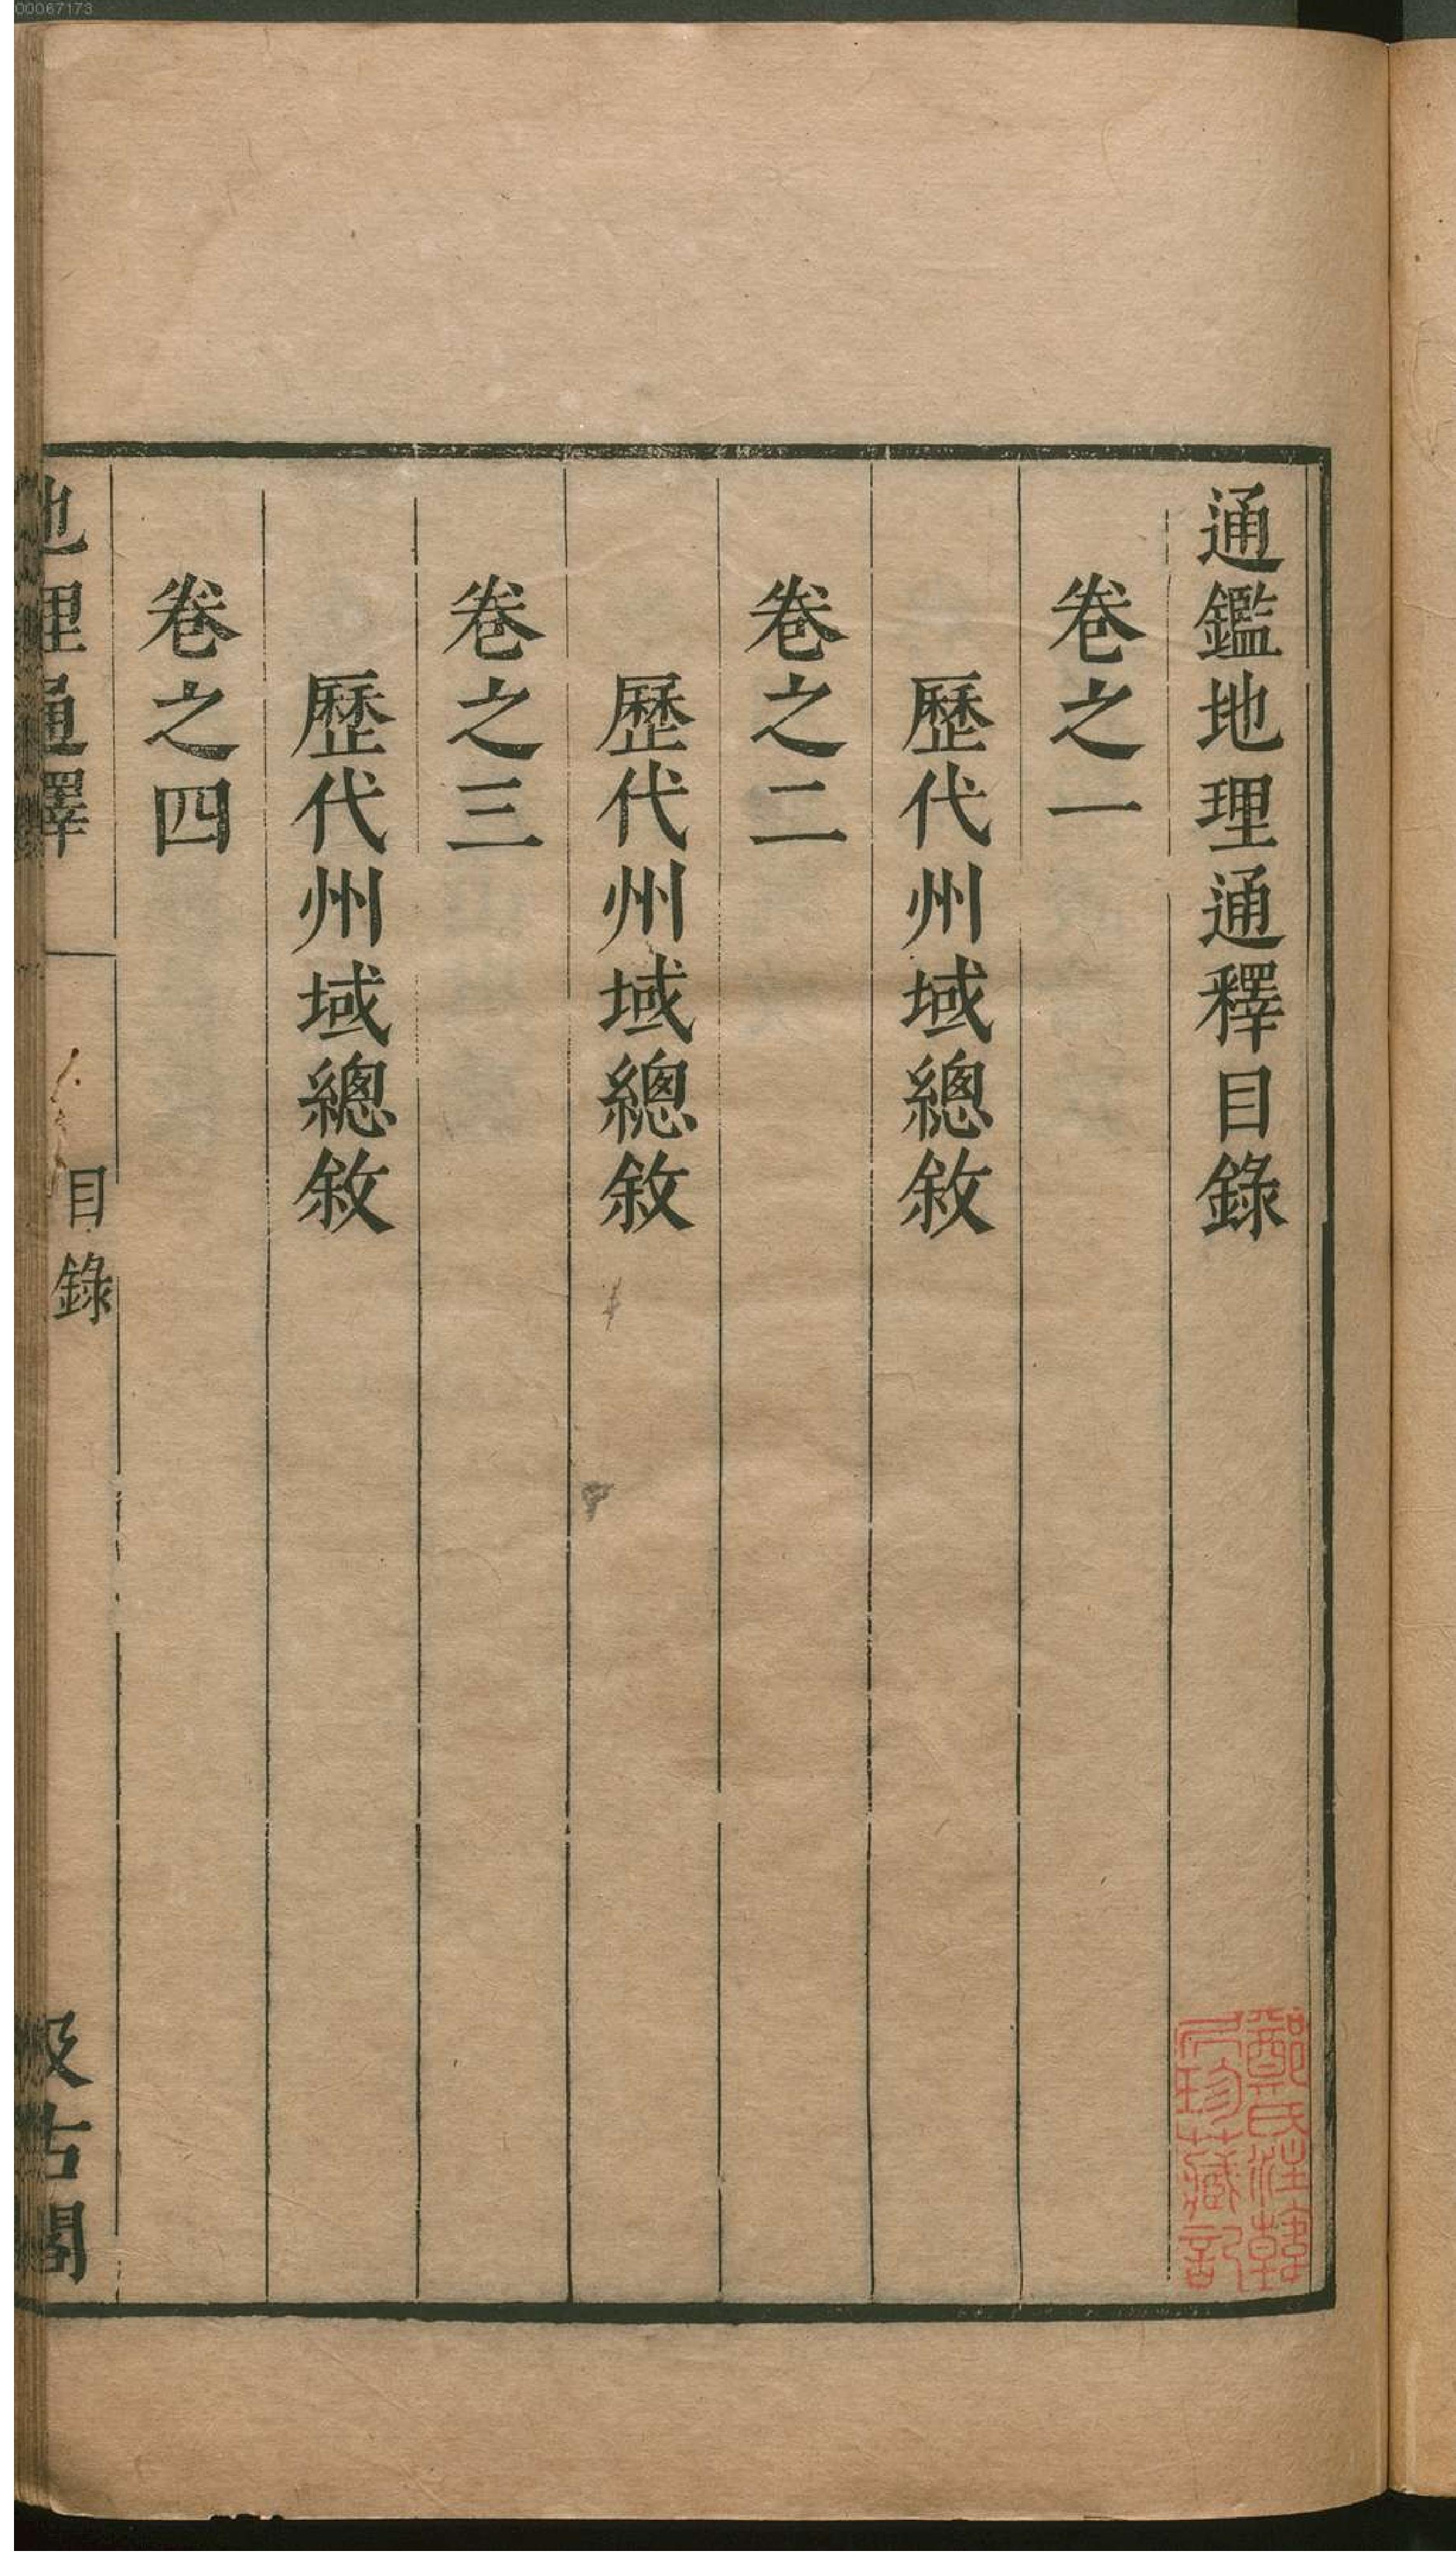 00067173
通鑑地理通釋目錄
卷之一
歷代州域總敘
卷之二
歷代州域總敘
卷之三
歷代州域總敘
卷之四
地理通釋
目錄
汲古閣
鄭氏注韓
居珍藏記